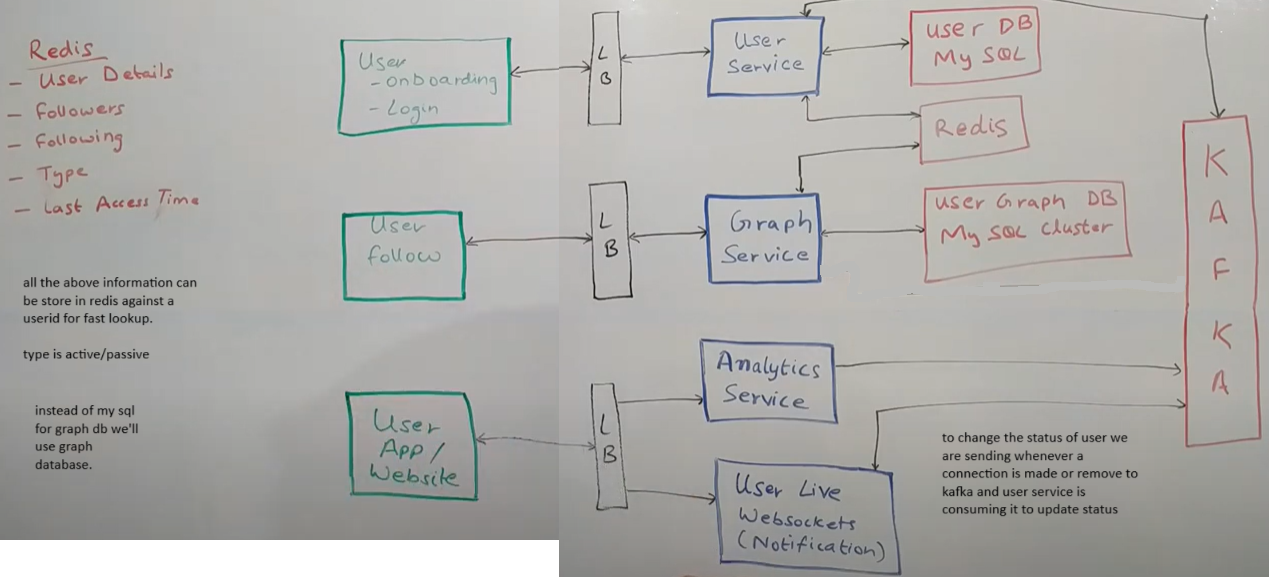 Redis
- User Details
- Followers
- Following
- Type
- Last Access Time
all the above information can
be store in redis against a
userid for fast lookup.
type is active/passive
instead of my sql
for graph db we'll
use graph
database.
User
- onboarding
- Login
L
B
User
Service
user DB
My SQL
Redis
User
follow
L
B
Graph
Service
user Graph DB
My SQL cluster
User
App/
Website
L
B
Analytics
Service
User Live
Websockets
(Notification)
K
A
F
K
A
to change the status of user we
are sending whenever a
connection is made or remove to
kafka and user service is
consuming it to update status